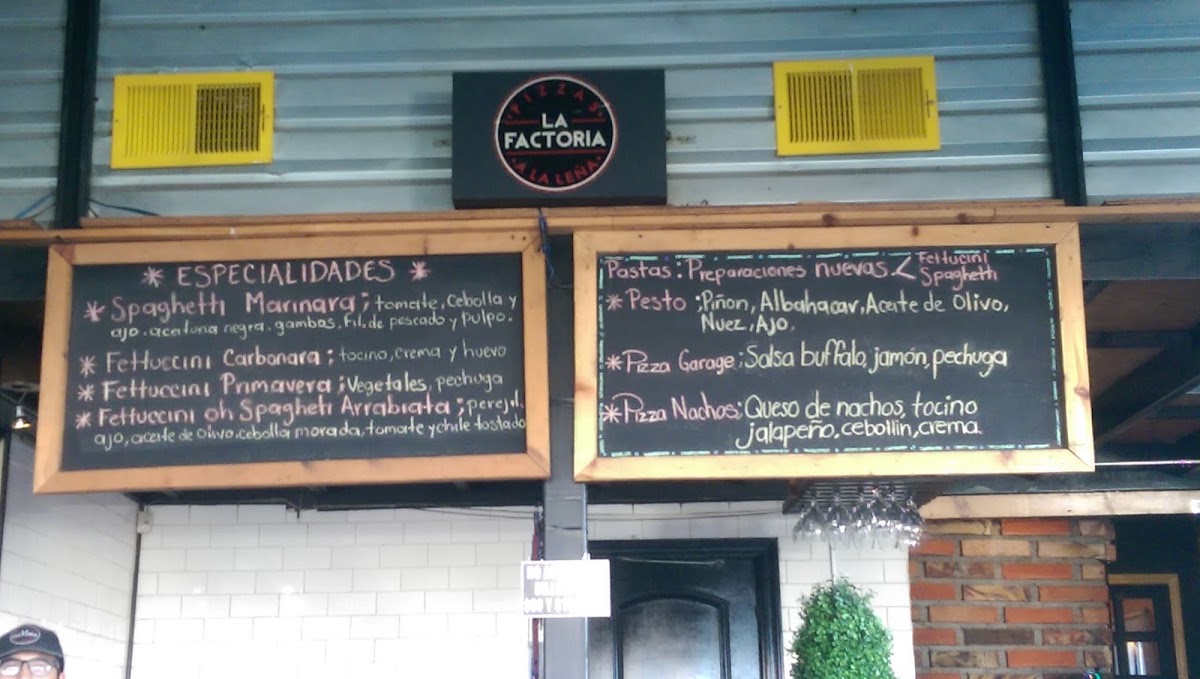 PIZZAS
LA
FACTORIA
A LA LEÑA
* ESPECIALIDADES *
* Spaghetti Marinara; tomate, Cebolla y
ajo, aceituna negra, gambas, Fil. de pescado y pulpo.
* Fettuccini Carbonara; tocino, crema y huevo
* Fettuccini Primavera; Vegetales, pechuga
* Fettuccini oh Spagheti Arrabiata; perejil,
ajo, aceite de olivo, cebolla morada, tomate y chile tostado
Pastas: Preparaciones nuevas < Fettucini
Spaghetti
* Pesto; Piñon, Albahacar, Aceite de Olivo,
Nuez, Ajo,
* Pizza Garage; Salsa buffalo, jamón, pechuga
* Pizza Nachos; Queso de nachos, tocino
jalapeño, cebollin, crema